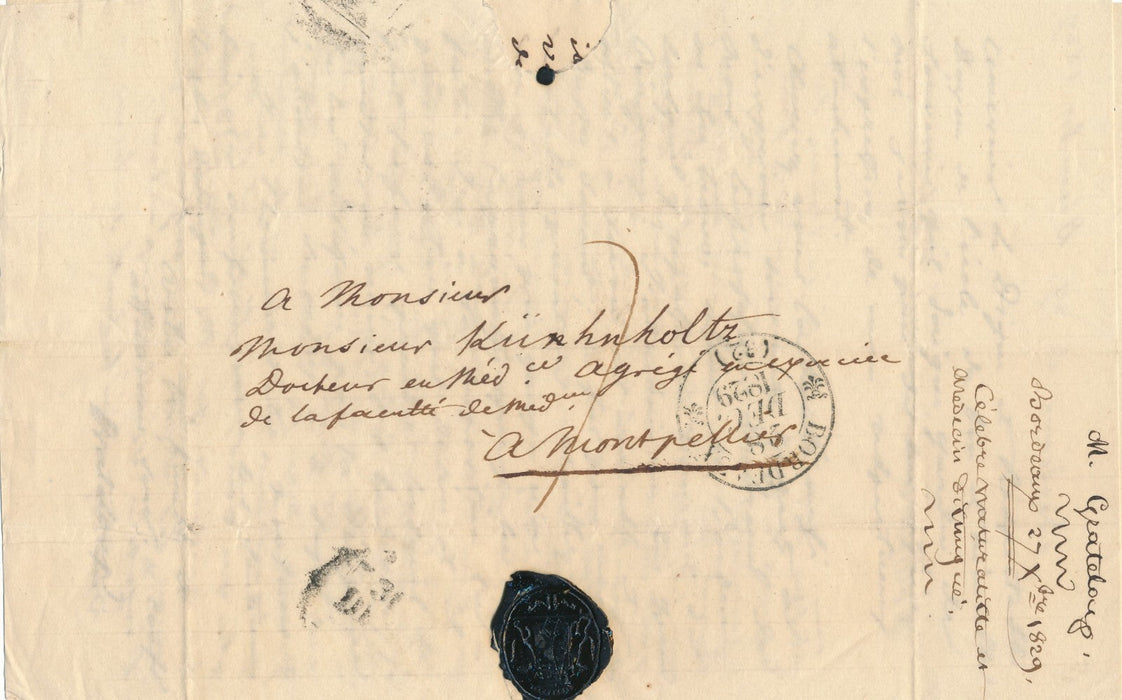 A Monsieur
Monsieur Kürhnholtz
Docteur en Méd.cie agrégé en exercice
de la faculté de Med.ine
à Montpellier
(32)
BORDE
28
DEC
1829
M. Grateloup,
Bordeaux 27 Xbre 1829,
Célèbre naturaliste et
Médecin distingué,